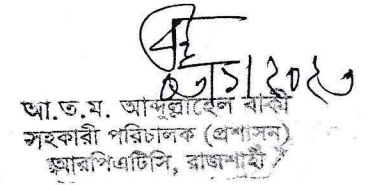 ০৩/১/২০২৩
আ.ত.ম. আব্দুল্লাহেল বাকী
সহকারী পরিচালক (প্রশাসন)
আরপিএটিসি, রাজশাহী